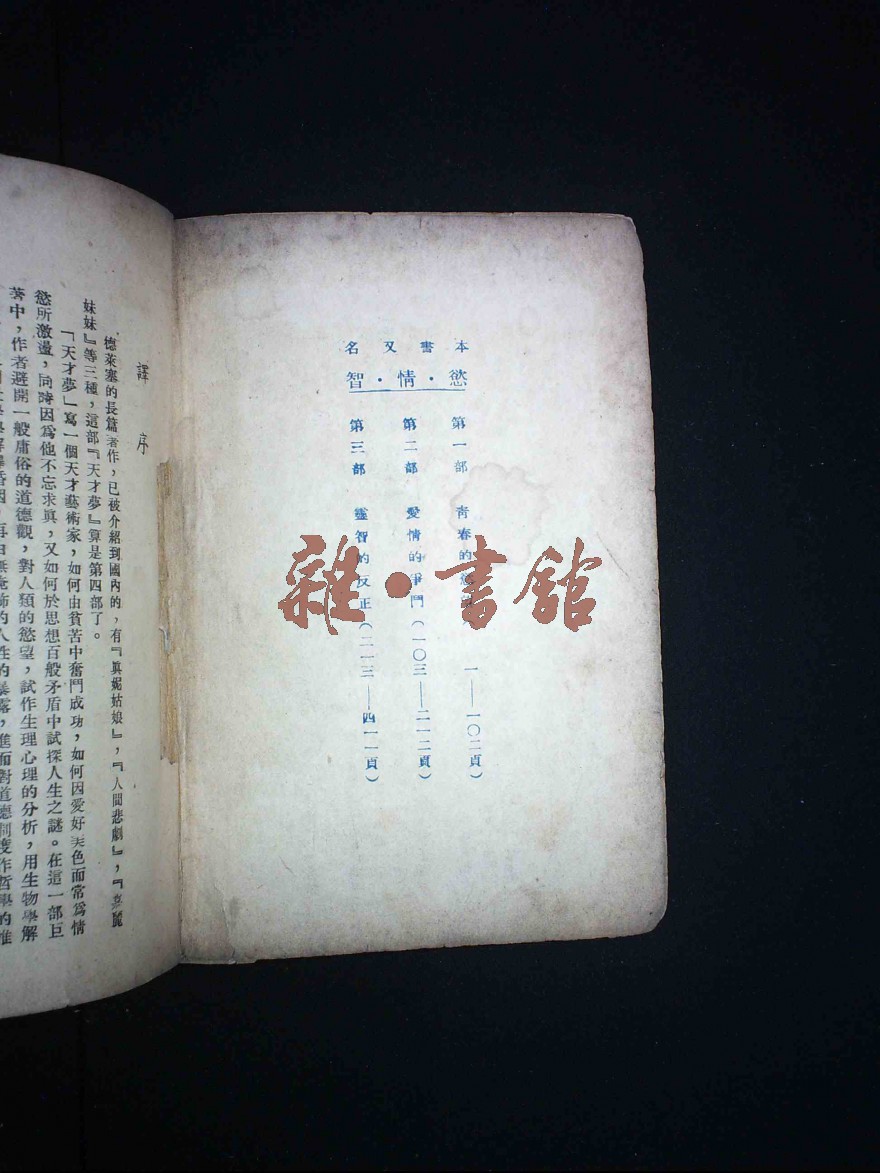 本書又名
慾·情·智
第一部 青春的 一——一〇二頁)
第二部 愛情的爭鬥(一〇三——二一二頁)
第三部 靈智的反正(二一三——四一一頁)
雜·書館
譯序
德萊塞的長篇著作,已被介紹到國內的,有『真妮姑娘』,『人間悲劇』,『嘉麗
妹妹』等三種,這部『天才夢』算是第四部了。
「天才夢」寫一個天才藝術家,如何由貧苦中奮鬥成功,如何因愛好美色而常爲情
慾所激盪,同時因爲他不忘求眞,又如何於思想百般矛盾中試探人生之謎。在這一部巨
著中,作者避開一般庸俗的道德觀,對人類的慾望,試作生理心理的分析,用生物學解
人性的暴露,進而對道德制度作哲學的推